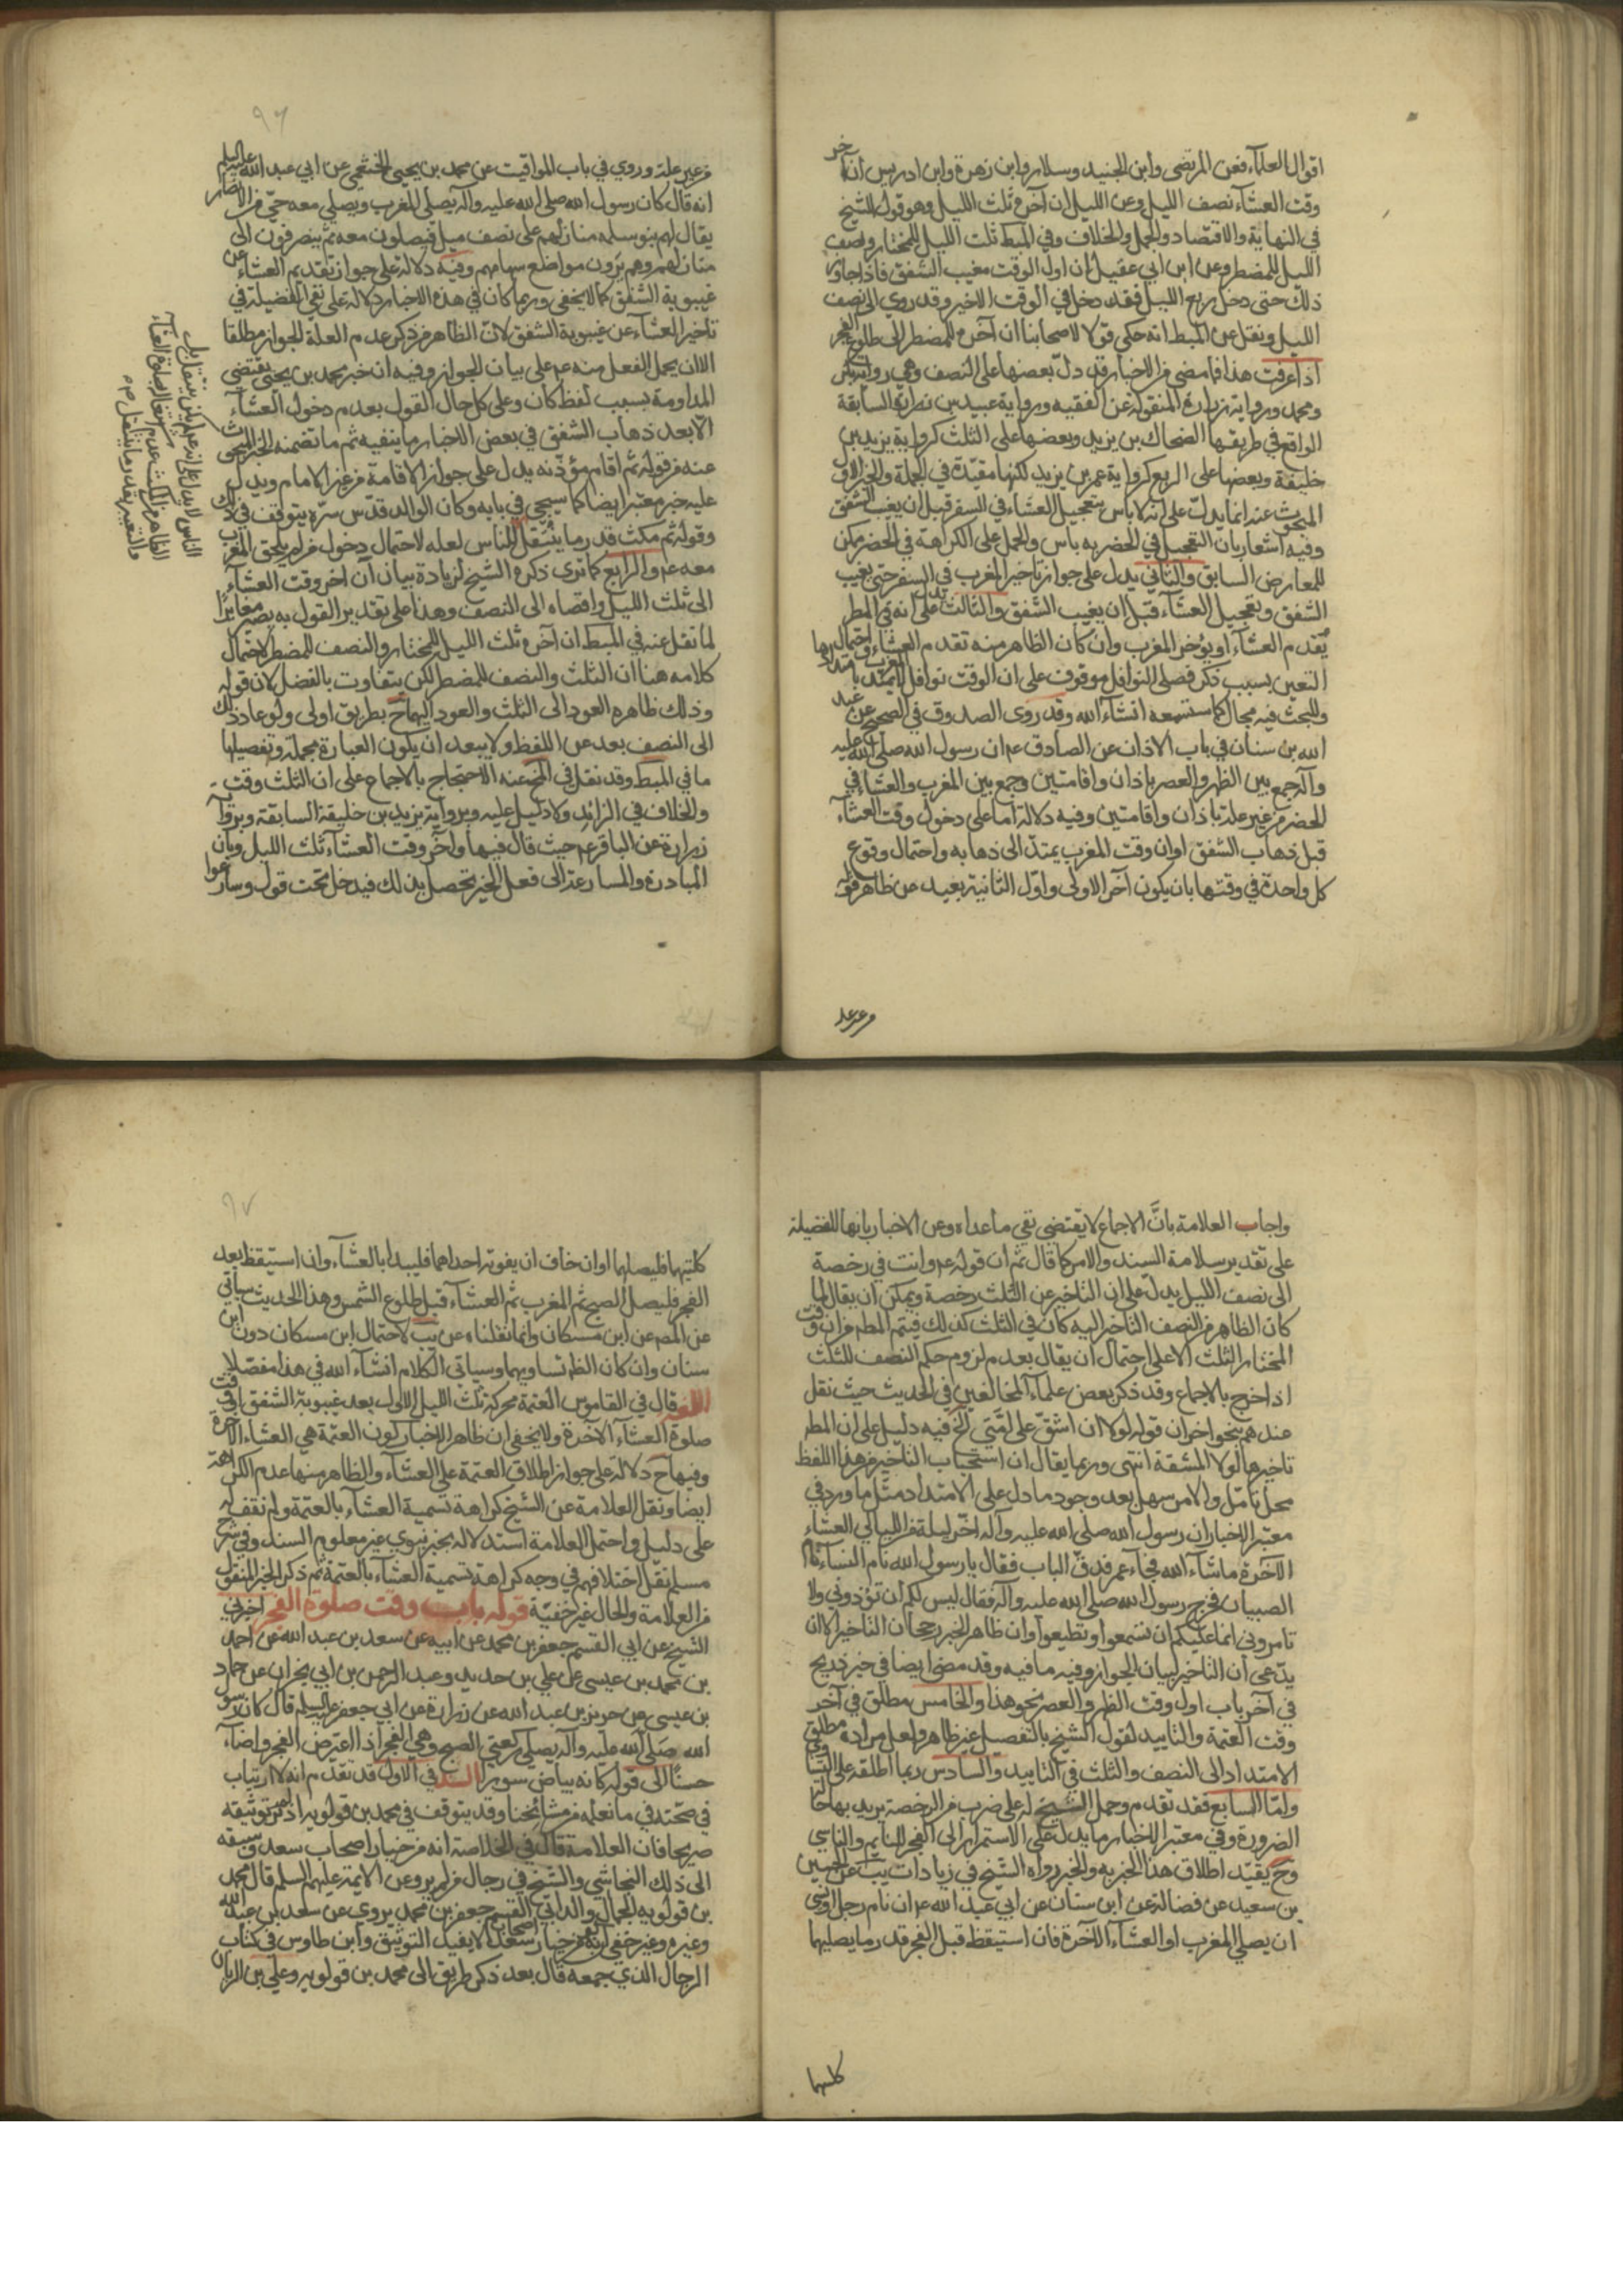 اقوال العلماء فعن المرتضى وابن الجنيد وسلار وابن زهرة وابن ادريس ان آخر
وقت العشاء نصف الليل وعن الليل ان آخره ثلث الليل وهو قول الشيخ
في النهاية والاقتصاد والجمل والخلاف وفي المبسط ثلث الليل للمختار ونصف
الليل للمضطر وعن ابن ابي عقيل ان اول الوقت مغيب الشفق فاذا جاوز
ذلك حتى دخل ربع الليل فقد دخل في الوقت الاخير وقد روي الى نصف
الليل ونقل عن المبسط انه حكى قولا لاصحابنا ان آخره للمضطر الى طلوع الفجر
اذا عرفت هذا فما مضى من الاخبار قد دل بعضها على النصف وهي رواية
ومحمد ورواية زرارة المنقولة عن الفقيه ورواية عبيد بن زرارة السابقة
الواقع في طريقها الضحاك بن يزيد وبعضها على الثلث كرواية يزيد بن
خليفة وبعضها على الربع كرواية عمر بن يزيد لكنها مقيدة في الجملة والخبر الاول
المبحوث عنه انما يدل على انه لا باس بتعجيل العشاء في السفر قبل ان يغيب الشفق
وفيه اشعار بان التعجيل في الحضر به باس والحمل على الكراهة في الحضر ممكن
للمعارض السابق والثاني يدل على جواز تاخير المغرب في السفر حتى يغيب
الشفق وتعجيل العشاء قبل ان يغيب الشفق والثالث يدل على انه في المطر
يقدم العشاء او يؤخر المغرب وان كان الظاهر منه تقدم العشاء واحتمال
التعين بسبب ذكر فصلى النوافل موقوف على ان الوقت نوافل المغرب يمتد بامتدادها
وللبحث فيه مجال كما ستسمعه انشاء الله وقد روى الصدوق في الصحيح عن عبد
الله بن سنان في باب الاذان عن الصادق عم ان رسول الله صلى الله عليه
وآله جمع بين الظهر والعصر باذان واقامتين وجمع بين المغرب والعشاء في
الحضر من غير علة باذان واقامتين وفيه دلالة اما على دخول وقت العشاء
قبل ذهاب الشفق او ان وقت المغرب يمتد الى ذهابه واحتمال وقوع
كل واحدة في وقتها بان يكون آخر الاولى واول الثانية بعيد عن ظاهر قوله
من غير علة
٩٦
من غير علة وروي في باب المواقيت عن محمد بن يحيى الخثعمي عن ابي عبد الله عليه السلم
انه قال كان رسول الله صلى الله عليه وآله يصلي المغرب ويصلي معه حي من الانصار
يقال لهم بنو سلمة منازلهم على نصف ميل فيصلون معه ثم ينصرفون الى
منازلهم وهم يرون مواضع سهامهم وفيه دلالة على جواز تقديم العشاء عن
غيبوبة الشفق كما لا يخفى وربما كان في هذه الاخبار دلالة على نفي الفضيلة في
تاخير العشاء عن غيبوبة الشفق لان الظاهر من ذكر عدم العلة الجواز مطلقا
الا ان يحمل الفعل منه عم على بيان الجواز وفيه ان خبر محمد بن يحيى يقتضي
المداومة بسبب لفظ كان وعلى كل حال القول بعدم دخول العشاء
الا بعد ذهاب الشفق في بعض الاخبار ما ينفيه ثم ما تضمنه الخبر المبحوث
عنه من قوله ثم اقام مؤذنه يدل على جواز الاقامة من غير الامام ويدل
عليه خبر معتبر ايضا كما سيجي في بابه وكان الوالد قدس سره يتوقف في ذلك
وقوله ثم مكث قدر ما يتنفل الناس لعله لاحتمال دخول من لم يلحق المغرب
معه عم والرابع كما ترى ذكره الشيخ لزيادة بيان ان اخر وقت العشاء
الى ثلث الليل واقصاه الى النصف وهذا على تقدير القول به يصير مغايرا
لما نقل عنه في المبسط ان آخره ثلث الليل للمختار والنصف للمضطر لاحتمال
كلامه هنا ان الثلث والنصف للمضطر لكن يتفاوت بالفضل لان قوله
وذلك ظاهره العود الى الثلث والعود اليهما ح بطريق اولى ولو عاد ذلك
الى النصف بعد عن اللفظ ولا يبعد ان يكون العبارة مجملة وتفصيلها
ما في المبسط وقد نقل في المخ عنه الاحتجاج بالاجماع على ان الثلث وقت
والخلاف في الزائد ولا دليل عليه وبرواية يزيد بن خليفة السابقة وبرواية
زرارة عن الباقر عم حيث قال فيها وآخر وقت العشاء ثلث الليل وبان
المبادرة والمسارعة الى فعل الخير تحصل بذلك فيدخل تحت قوله وسارعوا
واجاب العلامة بانّ الاجماع لا يقتضي نفي ما عداه وعن الاخبار بانها للفضيلة
على تقدير سلامة السند والامر كما قال ثم ان قوله عم وانت في رخصة
الى نصف الليل يدل على ان التاخير عن الثلث رخصة ويمكن ان يقال لما
كان الظاهر من النصف التاخير اليه كان في الثلث كذلك فيتم المطم من ان وقت
المختار الثلث الا على احتمال ان يقال بعدم لزوم حكم النصف للثلث
اذا خرج بالاجماع وقد ذكر بعض علماء المخالفين في الحديث حيث نقل
عندهم بنحو اخر ان قوله لولا ان اشق على امتي الخ فيه دليل على ان المطم
تاخيرها لولا المشقة انتهى وربما يقال ان استحباب التاخير من هذا اللفظ
محل تامل والامر سهل بعد وجود ما دل على الامتداد مثل ما ورد في
معتبر الاخبار ان رسول الله صلى الله عليه وآله اخر ليلة من الليالي العشاء
الآخرة ما شاء الله فجاء عمر فدق الباب فقال يا رسول الله نام النساء نام
الصبيان فخرج رسول الله صلى الله عليه وآله فقال ليس لكم ان تؤذوني ولا
تامروني انما عليكم ان تسمعوا وتطيعوا وان ظاهر الخبر رجحان التاخير الا ان
يدعى ان التاخير لبيان الجواز وفيه ما فيه وقد مضى ايضا في خبر ذريح
في آخر باب اول وقت الظهر والعصر نحو هذا والخامس مطلق في آخر
وقت العتمة والتاييد لقول الشيخ بالتفصيل غير ظاهر ولعل مراده مطلق
الامتداد الى النصف والثلث في التاييد والسادس ربما اطلقه على
واما السابع فقد تقدم وحمل الشيخ له على ضرب من الرخصة يريد بها حال
الضرورة وفي معتبر الاخبار ما يدل على الاستمرار الى الفجر للنايم والناسي
وح يقيد اطلاق هذا الخبر به والخبر رواه الشيخ في زيادات يب عن الحسين
بن سعيد عن فضالة عن ابن سنان عن ابي عبد الله عم ان نام رجل او نسي
ان يصلي المغرب او العشاء الآخرة فان استيقظ قبل الفجر قدر ما يصليهما
كلتيهما
٩٧
كلتيهما فليصلهما وان خاف ان يفوته احداهما فليبدا بالعشاء وان استيقظ بعد
الفجر فليصل الصبح ثم المغرب ثم العشاء قبل طلوع الشمس وهذا الحديث سياتي
عن المصم عن ابن مسكان وانما نقلناه عن يب لاحتمال ابن مسكان دون ابن
سنان وان كان الظم تساويهما وسياتي الكلام انشاء الله في هذا مفصلا
اللغه قال في القاموس العتمة محركة ثلث الليل الاول بعد غيبوبة الشفق او وقت
صلوة العشاء الآخرة ولا يخفى ان ظاهر الاخبار كون العتمة هي العشاء الآخرة
وفيها ح دلالة على جواز اطلاق العتمة على العشاء والظاهر منها عدم الكراهة
ايضا ونقل العلامة عن الشيخ كراهة تسمية العشاء بالعتمة ولم نقف له
على دليل واحتمل العلامة استدلاله بخبر نبوي غير معلوم السند وفي شرح
مسلم نقل اختلافهم في وجه كراهة تسمية العشاء بالعتمة ثم ذكر الخبر المنقول
من العلامة والحال غير خفية قوله باب وقت صلوة الفجر اخبرني
الشيخ عن ابي القسم جعفر بن محمد عن ابيه عن سعد بن عبد الله عن احمد
بن محمد بن عيسى عن علي بن حديد وعبد الرحمن بن ابي نجران عن حماد
بن عيسى عن حريز بن عبد الله عن زرارة عن ابي جعفر عليه السلم قال كان رسول
الله صلى الله عليه وآله يصلي ركعتي الصبح وهي الفجر اذا اعترض الفجر واضاء
حسنا الى قوله كانه بياض سورا السند في الاول قد تقدم انه لا ارتياب
في صحته في ما نعلمه من مشائخنا وقد يتوقف في محمد بن قولويه اذ لم توثيقه
صريحا فان العلامة قال في الخلاصة انه من خيار اصحاب سعد وسبقه
الى ذلك النجاشي والشيخ في رجال من لم يرو عن الايمة عليهم السلم قال محمد
بن قولويه الجمال والد ابي القسم جعفر بن محمد يروي عن سعد بن عبد الله
وغيره وغير خفي انه من خيار اصحاب سعد لا يفيد التوثيق وابن طاوس في كتاب
الرجال الذي جمعه قال بعد ذكر طريق الى محمد بن قولويه وعلي بن الريان